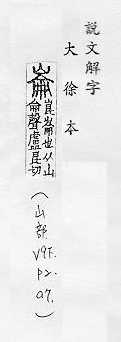 說文解字
大徐本
崙
崑崙也从山
侖聲盧昆切
(山部 V9下. P2. a7.)